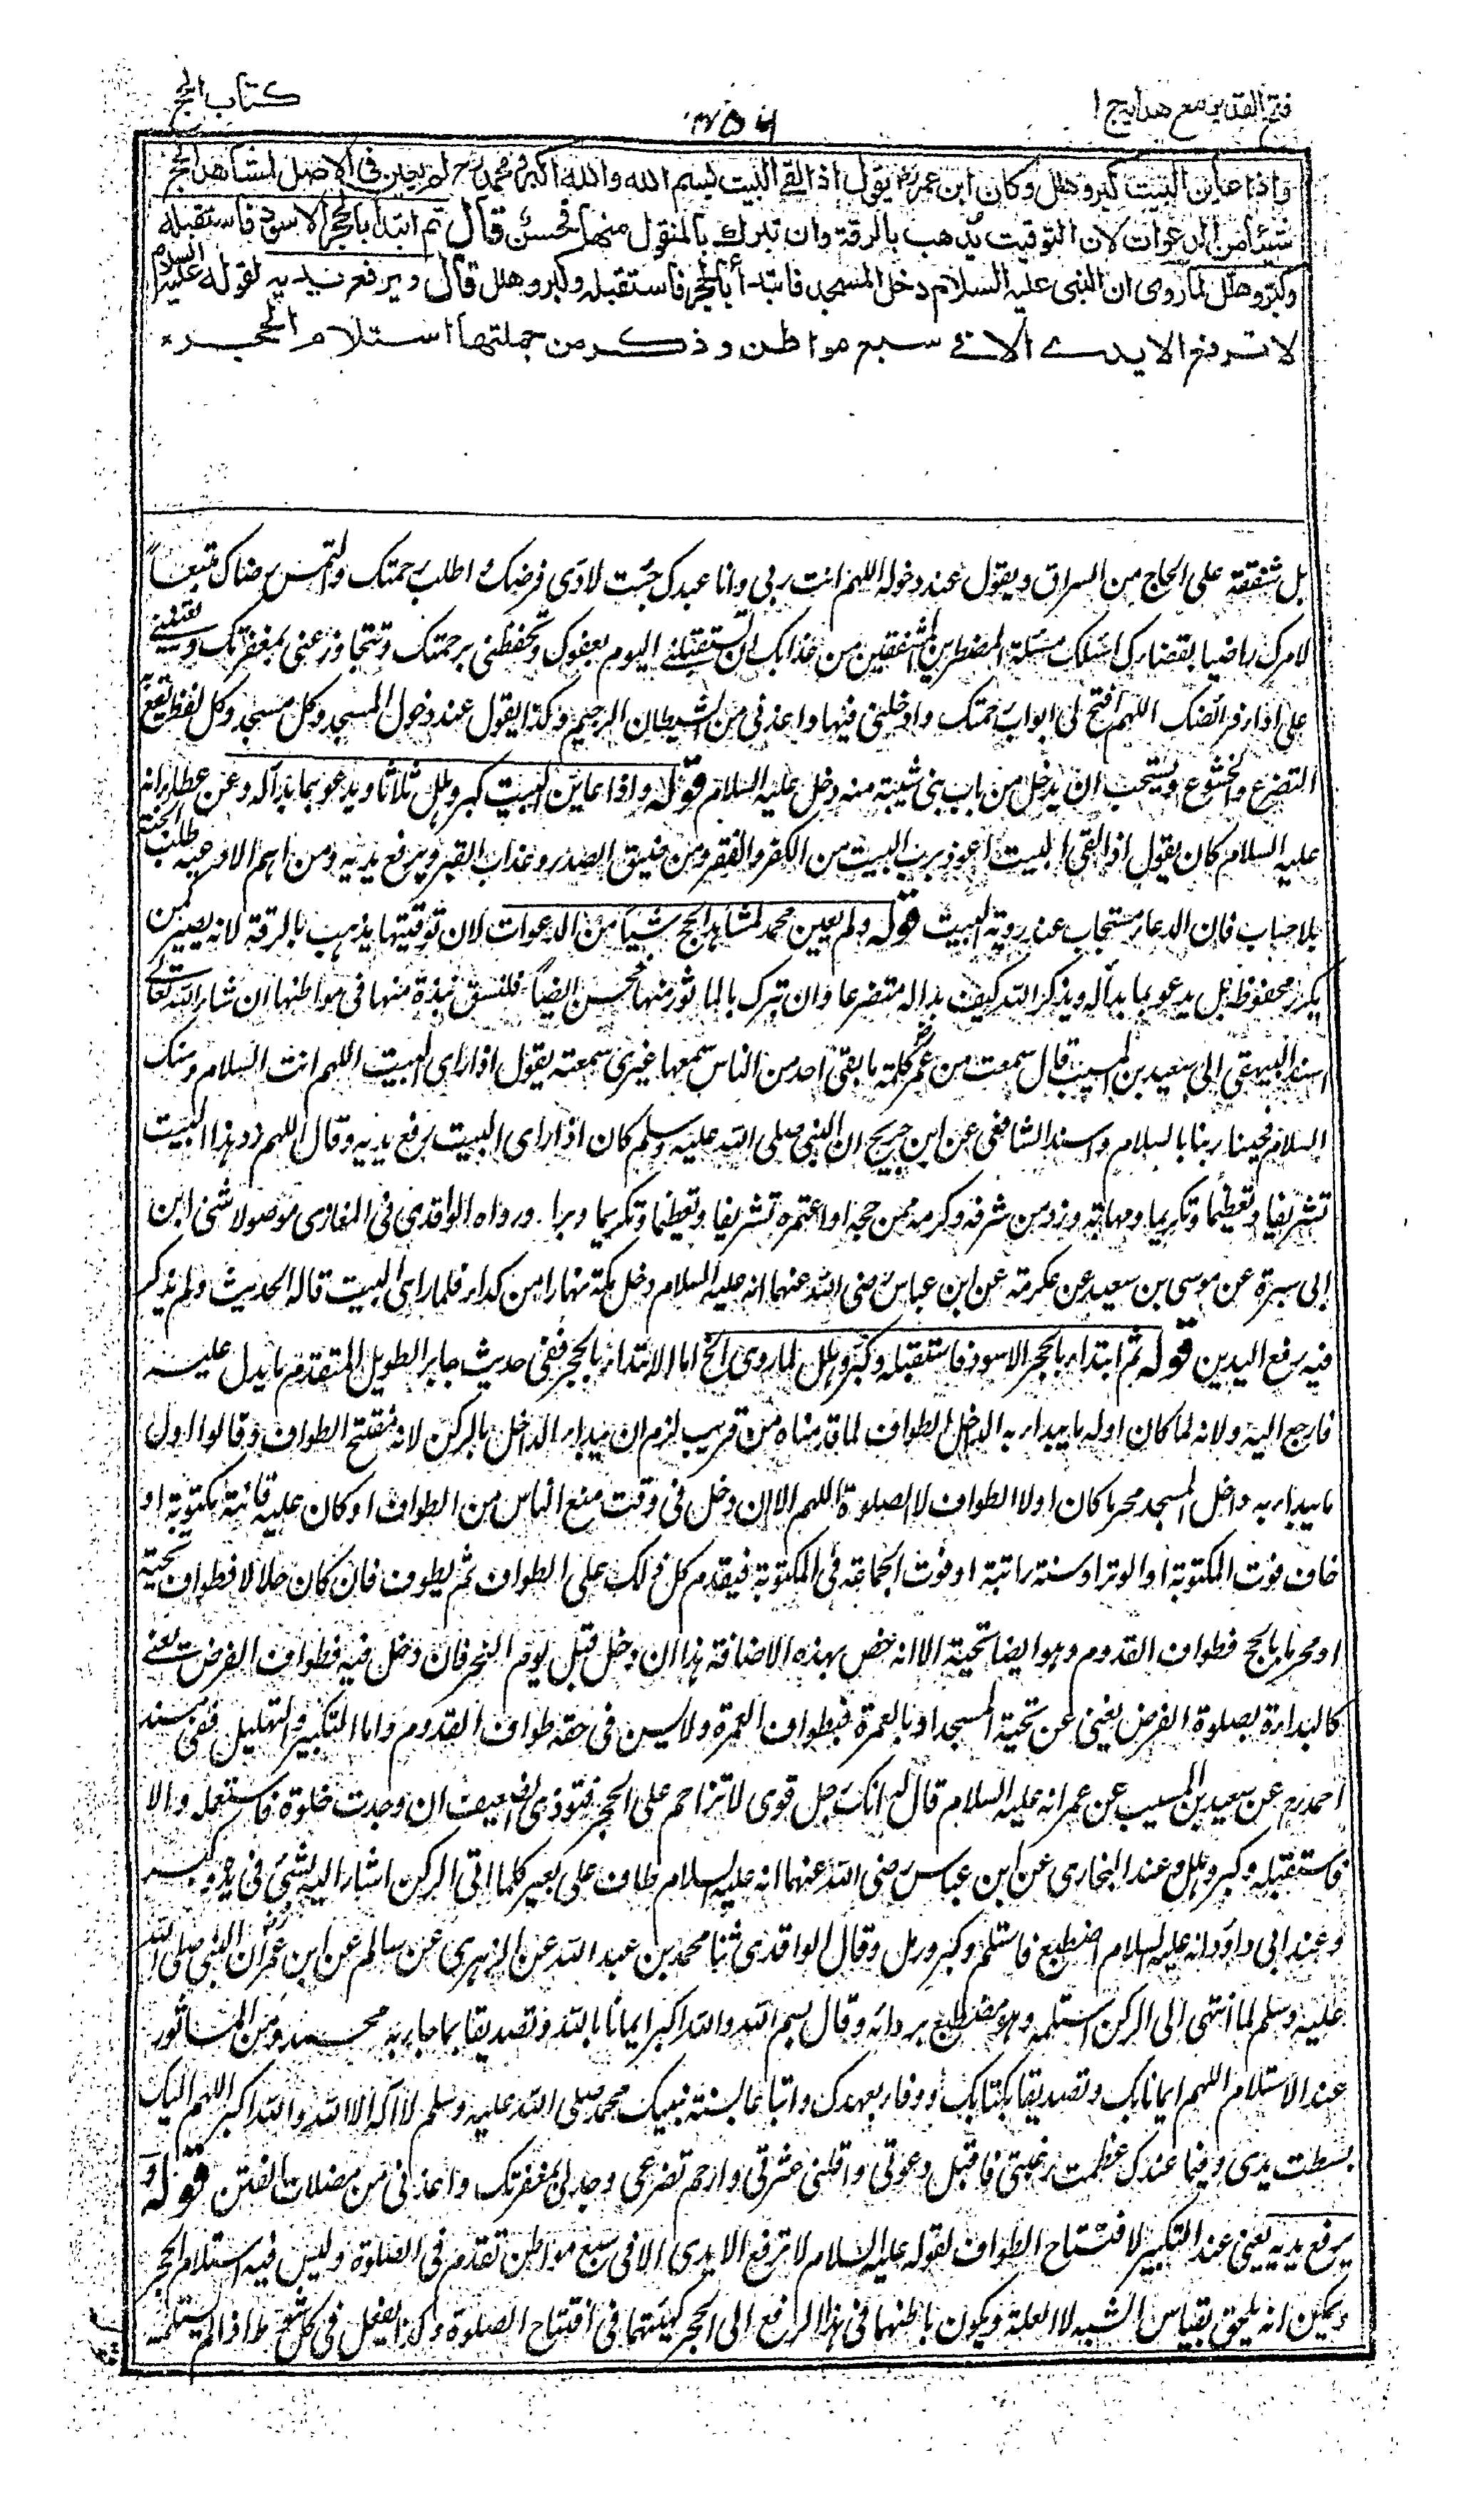 فتح القدير مع هدايه ج ا
۳۵۶
كتاب الحج
واذا عاين البيت كبر وهلل وكان ابن عمر رض يقول اذا لقى البيت بسم الله والله اكبر ومحمد رح لم يعين فى الاصل لمشاهد الحج
شيئا من الدعوات لان التوقيت يذهب بالرقة وان تبرك بالمنقول منها فحسن قال ثم ابتدأ بالحجر الاسود فاستقبله
وكبر وهلل لما روى ان النبى عليه السلام دخل المسجد فابتدأ بالحجر فاستقبله وكبر وهلل قال ويرفع يديه لقوله عليه السلام
لا ترفع الايدے الا فے سبع مواطن وذكر من جملتها استلام الحجر
بل شفقة على الحاج من السراق ويقول عند دخوله اللهم انت ربى وانا عبدك جئت لاؤدى فرضك واطلب رحمتك والتمس رضاك متبعاً
لامرك راضيا بقضاءك اسئلك مسئلة المضطرين المشفقين من عذابك ان تستقبلنے اليوم بعفوك وتحفظنى برحمتك وتتجاوز عنى بمغفرتك وتعيننے
على اداء فرائضك اللهم افتح لى ابواب رحمتك وادخلنى فيها واعذنى من الشيطان الرجيم وكذا يقول عند دخول المسجد وكل مسجد وكل لفظ يقع به
التضرع والخشوع ويستحب ان يدخل من باب بنى شيبة منه دخل عليه السلام قوله واذا عاين البيت كبر وهلل ثلاثا ويدعو بما بدا له وعن عطاء انه
عليه السلام كان يقول اذا لقى البيت اعوذ برب البيت من الكفر والفقر ومن ضيق الصدر وعذاب القبر ويرفع يديه ومن اهم الادعية طلب الجنة
بلا حساب فان الدعاء مستجاب عند روية البيت قوله ولم يعين محمد لمشاهد الحج شيأ من الدعوات لان توقيتها يذهب بالرقة لانه يصير كمن
يكرر محفوظه بل يدعو بما بدا له ويذكر الله كيف بدا له متضرعا وان تبرك بالماثور منها فحسن ايضاً فلنسق نبذة منها فى مواطنها ان شاء الله تعالے
اسند البيهقى الى سعيد بن المسيب قال سمعت من عمر رض كلمة ما بقى احد من الناس سمعها غيرى سمعته يقول اذا راى البيت اللهم انت السلام ومنك
السلام فحينا ربنا بالسلام واسند الشافعى عن ابن جريج ان النبى صلى الله عليه وسلم كان اذا راى البيت رفع يديه وقال اللهم زد هذا البيت
تشريفا وتعظيما وتكريما ومهابة وزد من شرفه وكرمه ممن حجه او اعتمره تشريفا وتعظيما وتكريما وبرا. ورواه الواقدى فى المغازى موصولا ثنى ابن
ابى سبرة عن موسى بن سعيد عن عكرمة عن ابن عباس رضى الله عنهما انه عليه السلام دخل مكة نهارا من كداء فلما راى البيت قال الحديث ولم يذكر
فيه رفع اليدين قوله ثم ابتداء بالحجر الاسود فاستقبله وكبر وهلل لما روى الخ اما الابتداء بالحجر ففى حديث جابر الطويل المتقدم ما يدل عليه
فارجع اليه ولانه لما كان اول ما يبداء به الداخل الطواف لما قدمناه من قريب لزم ان يبداء الداخل بالركن لانه مفتتح الطواف وقالوا اول
ما يبداء به داخل المسجد محرما كان اولا الطواف لا الصلوة اللهم الا ان دخل فى وقت منع الناس من الطواف او كان عليه فائتة مكتوبة او
خاف فوت المكتوبة او الوتر او سنة راتبة او فوت الجماعة فى المكتوبة فيقدم كل ذلك على الطواف ثم يطوف فان كان حلالا فطواف تحية
او محرما بالحج فطواف القدوم وهو ايضا تحية الا انه خص بهذه الاضافة هذا ان دخل قبل يوم النحر فان دخل فيه فطواف الفرض يغنے
كالبداءة بصلوة الفرض يغنى عن تحية المسجد او بالعمرة فبطواف العمرة ولا يسن فى حقه طواف القدوم واما التكبير والتهليل ففى مسند
احمد رح عن سعيد بن المسيب عن عمر انه عليه السلام قال له انك رجل قوى لا تزاحم على الحجر فتؤذى الضعيف ان وجدت خلوة فاستلمه والا
فاستقبله وكبر وهلل وعند البخارى عن ابن عباس رضى الله عنهما انه عليه السلام طاف على بعير كلما اتى الركن اشار اليه بشئ فى يده وكبر
وعند ابى داؤد انه عليه السلام اضطبع فاستلم وكبر ورمل وقال الواقدى ثنا محمد بن عبد الله عن الزهرى عن سالم عن ابن عمر رض ان النبى صلى الله
عليه وسلم لما انتهى الى الركن استلمه وهو مضطبع بردائه وقال بسم الله والله اكبر ايمانا بالله وتصديقا بما جاء به محمد ومن الماثور
عند الاستلام اللهم ايمانا بك وتصديقا بكتابك ووفاء بعهدك واتباعا لسنة نبيك محمد صلى الله عليه وسلم لا اله الا الله والله اكبر اللهم اليك
بسطت يدى وفيما عندك عظمت رغبتى فاقبل دعوتى واقلنى عثرتى وارحم تضرعى وجد لى بمغفرتك واعذنى من مضلات الفتن قوله و
يرفع يديه يعنى عند التكبير لافتتاح الطواف لقوله عليه السلام لا ترفع الايدى الا فى سبع مواطن تقدم فى الصلوة وليس فيه استلام الحجر
ويمكن انه يلحق بقياس الشبه لا العلة ويكون باطنهما فى هذا الرفع الى الحجر كهيئتهما فى افتتاح الصلوة وكذا يفعل فى كل شوط اذا لم يستلمه